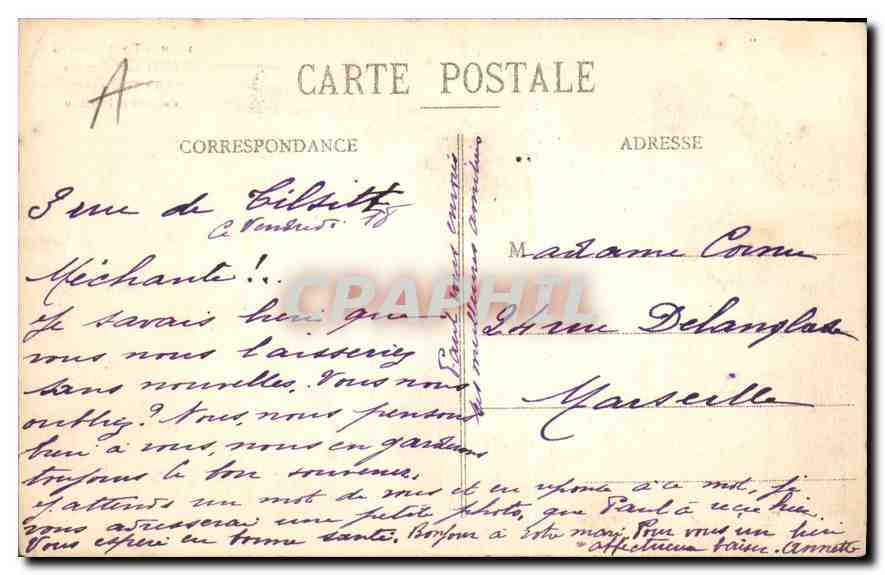 A
CARTE POSTALE
CORRESPONDANCE
ADRESSE
3 rue de Tilsitt
Ce Vendredi 18
Méchante !..
Je savais bien que
vous nous laisseriez
sans nouvelles. Vous nous
oubliez? Nous, nous pensons
bien à vous, nous en gardons
toujours le bon souvenir.
J'attends un mot de vous et en réponse à ce mot, je
vous adresserai une petite photo, que Paul à reçu hier.
Vous espère en bonne santé. Bonjour à votre mari. Pour vous un bien
affectueux baiser. Annette
Paul vous envoie
ses meilleures amitiés
Madame Cornu
24 rue Delanglade
Marseille
CPAPHIL